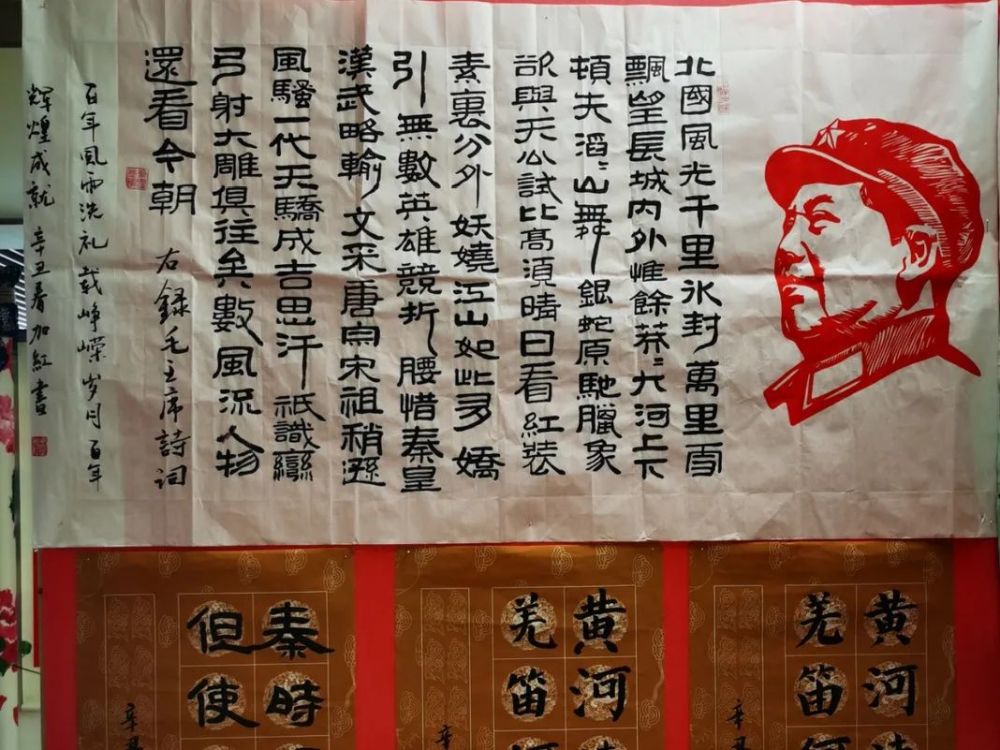 北國風光千里氷封萬里雪
飄望長城内外惟餘莽〻大河上下
頓失滔〻山舞銀蛇原馳臘象
欲與天公試比高須晴日看紅装
素裹分外妖嬈江山如此多嬌
引無數英雄競折腰惜秦皇
漢武略輸文采唐宗宋祖稍遜
風騷一代天驕成吉思汗祇識彎
弓射大雕俱往矣數風流人物
還看今朝
右録毛主席詩词
百年風雨洗礼载峥嵘岁月百年
辉煌成就 辛丑春加紅書
黄河
羌笛
辛丑
黄河
羌笛
辛
秦時
但使
辛丑